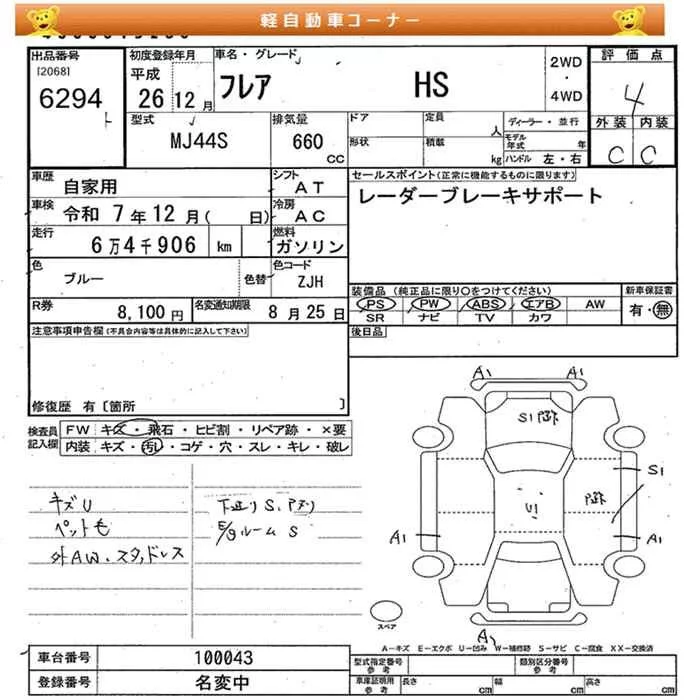 軽自動車コーナー
出品番号
[2068]
6294
初度登録年月
平成
26 12月
車名・グレード
フレア HS
2WD
・
4WD
評価点
4
外装 内装
C C
型式
MJ44S
排気量
660
CC
ドア
形状
定員
人
積載
kg
ディーラー・並行
モデル年式 年
ハンドル 左・右
車歴
自家用
シフト
AT
車検
令和 7年12月( 日)
冷房
AC
走行
6万4千906 km
燃料
ガソリン
色
ブルー
色替
色コード
ZJH
R券
8,100円
名変通知期限
8月25日
セールスポイント(正常に機能するものに限ります)
レーダーブレーキサポート
装備品(純正品に限り○をつけてください)
PS PW ABS エアB AW
SR ナビ TV カワ
新車保証書
有・無
後日品
注意事項申告欄(不具合内容等は具体的に記入して下さい)
修復歴 有〔箇所 〕
検査員
記入欄
FW キズ・飛石・ヒビ割・リペア跡・×要
内装 キズ・汚レ・コゲ・穴・スレ・キレ・破レ
キズU
ペット毛
外AW・スタッドレス
下廻りS、Pヌリ
E/gルームS
A1 A1
S1
U1
S1
A1 A1
スペア
A
A―キズ E―エクボ U―凹み W―補修跡 S―サビ C―腐食 XX―交換済
車台番号
100043
登録番号
名変中
型式指定番号
参考
類別区分番号
参考
車庫証明用
参考
長さ cm
幅 cm
高さ cm